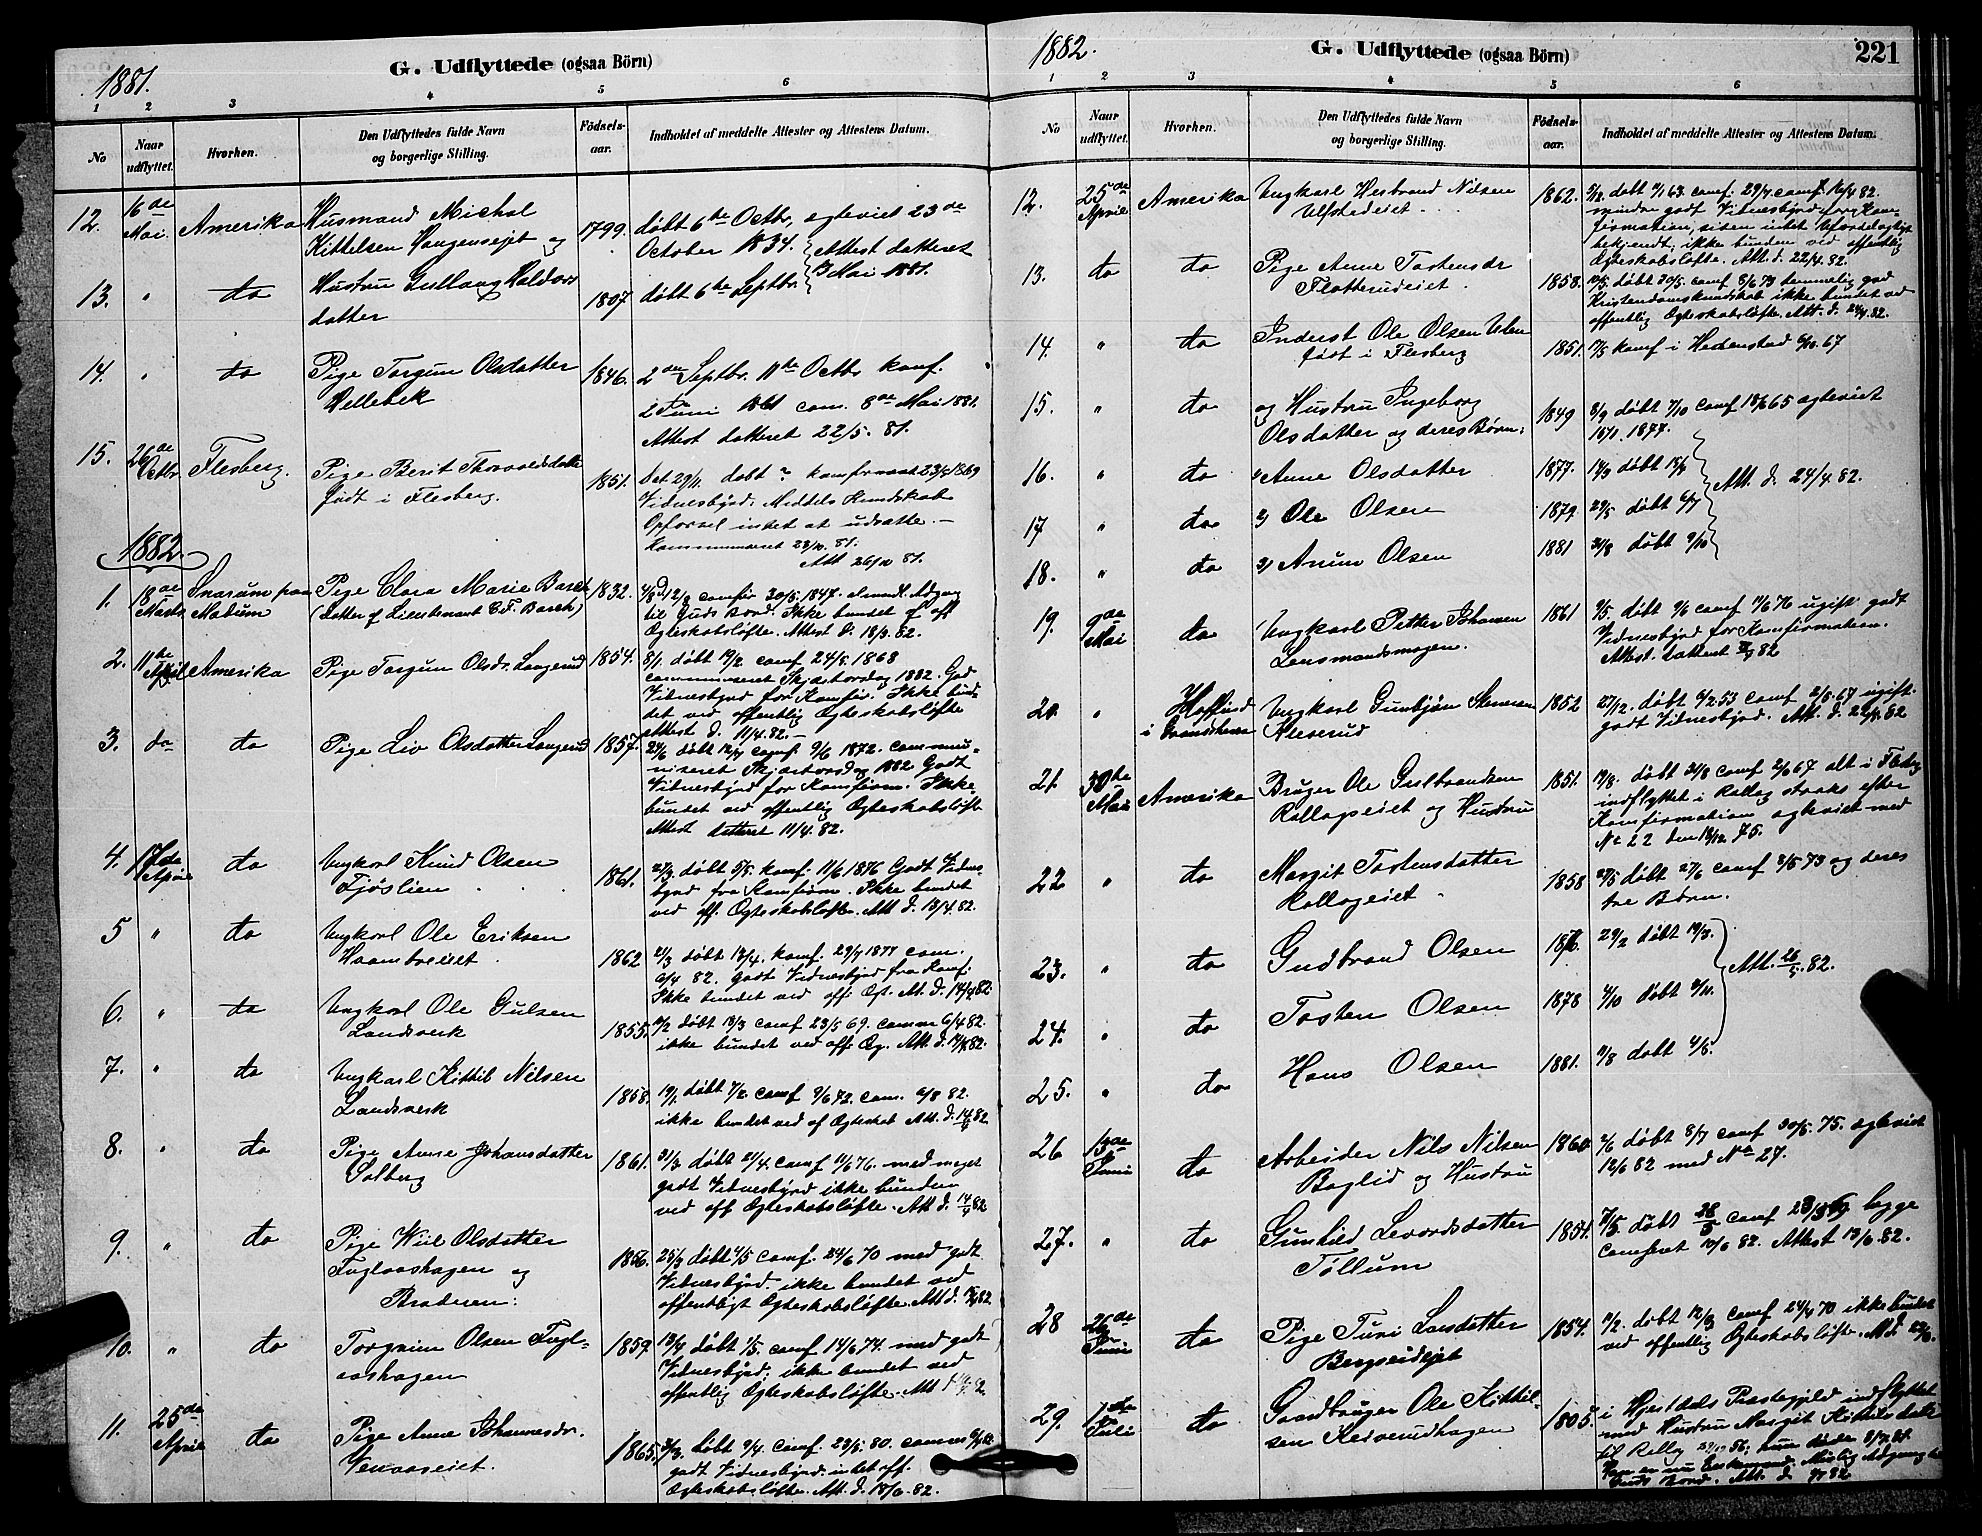 1881.
G. Udflyttede (ogsaa Börn)
1 2 3 4 5 6
No
Naar udflyttet.
Hvorhen.
Den Udflyttedes fulde Navn
og borgerlige Stilling.
Födsels-
aar.
Indholdet af meddelte Attester og Attestens Datum.
12. 16de Mai. Amerika Husmand Michal
Kittelsen Haugensejet og 1799. döbt 6te Octbr, egteviet 23de
October 1834. Attest datteret
3 Mai 1881.
13. " do Hustru Gullaug Haldors
datter 1807 döbt 6te Septbr.
14. " do Pige Torgun Olsdatter
Vellebek 1846. 2den Septbr. 11te Octbr konf.
Juni 1861 com. 8de Mai 1881.
Attest datteret 22/5. 81.
15. 26de Octbr Flesberg. Pige Berit Thorvaldsdatter
födt i Flesberg. 1851. döbt ? konfirmeret 1869
Vidnesbyrd: Middels Kundskab
Opforsel intet at udsatte.
Kommuneret 23/10. 81.
Att 26/10 81.
1882.
1. 18de Marts Snarum paa
Modum Pige Clara Marie Barth
(Datter af Lieutenant C. F. Barth) 1832. 4/8 D 12/8 confir 30/5. 1847. almindl. Adgang
til Guds Bord. Ikke bundet af off
Egteskabslöfte. Attest D. 18/3. 82.
2. 11te April Amerika Pige Torgun Olsdr. Langerud 1854. 8/1. döbt 19/2 comf 24/5. 1868
communiceret Skjærtorsdag 1882. God
Vidnesbyrd for Konfir. Ikke bun-
det ved offentlig Egteskabslöfte
attest D. 11/4. 82.
3. do do Pige Liv Olsdatter Langerud 1857. döbt comf 9/6 1872. commu-
niseret Skjærtorsdag 1882 Godt
Vidnesbyrd for Konfirm. Ikke
bundet ved offentlig Egteskabslöft
Attest datteret 11/4. 82.
4. 17de April do Ungkarl Knud Olsen
Fjöslien 1861. 27/3 döbt 5/5. konf. 11/6 1876 Godt Vidnes-
byrd fra Konfirm. Ikke bundet
ved off. Egteskabslöfte. Att. D. 13/4. 82.
5 " do Ungkarl Ole Eriksen
1862 döbt 13/4. konf. 29/7 1877 com.
6/4 82. godt Vidnesbyrd fra Konf.
Ikke bundet ved off. Egt. Att. D. 14/4 82.
6. " do Ungkarl Ole Gulsen
Landsverk 1855. döbt 18/3 comf 23/5 69. comm 6/4 82.
ikke bundet ved off. Eg. Att. D. 82.
7. " do Ungkarl Kittil Nilsen
Landsverk 1858. 19/1 döbt 7/2 comf 9/6 72. com. 82.
ikke bundet ved af Egteskab Att. D. 82
8. " do Pige Anne Johansdatter
Solberg 1861. 31/3 döbt 21/4. comf 11/6 76. med meget
godt Vidnesbyrd ikke bunden
ved off Egteskabslöfte. Att D. 14/4 82
9. " do Pige Olsdatter
Fuglaashagen og
Broderen: 1856. 25/3 döbt 4/5 comf. 24/6 70 med godt
Vidnesbyrd ikke bundet ved
offentligt Egteskabslöfte. Att D. 82
10. " do Torgrim Olsen Fugl-
aashagen 1859. 13/4 döbt 1/5. comf 14/6 74. med godt
Vidnesbyrd: ikke bundet ved
offentlig Egteskabslöfte. Att. 82
11. 25de April do Pige Anne Johannesdr.
Venaaseiet. 1865. döbt 9/4. comf. 23/5. 80. comm
godt Vidnesbyrd. intet off.
Egteskabslöfte. Att. D. 82.
1882.
G. Udflyttede (ogsaa Börn)
221
1 2 3 4 5 6
No
Naar udflyttet.
Hvorhen.
Den Udflyttedes fulde Navn
og borgerlige Stilling.
Födsels-
aar.
Indholdet af meddelte Attester og Attestens Datum.
12. 25de April Amerika Ungkarl Herbrand Nilsen
Ulstadeiet 1862. 5/12. döbt 1/1 63. comf. 29/7 16/4 82.
mindre godt Vidnesbyrd for Kon-
firmation, siden intet Ufordelagtigt
bekjendt, ikke bunden ved offentlig
Egteskabslöfte. Att. d. 22/4. 82.
13. do do Pige Anne Tostensdr
Flotterudeiet. 1858. döbt 30/5. comf 8/6 73 temmelig god
Kristendomskundskab ikke bundet ved
offentlig Egteskabslöfte. Att. d. 24/4. 82.
14. " do Inderst Ole Olsen Ulen
födt i Flesberg 1851. 17/5 konf i Hedenstad 6/10. 67
15. " do og Hustru Ingeborg
Olsdatter og deres Börn: 1849 8/9 döbt 7/10 comf 18/6 65 egteviet
1877.
16. " do 1) Anne Olsdatter 1877. döbt
17 " do 2) Ole Olsen 1879. 29/5 döbt 6/7 Att. d. 24/4. 82.
18. " do 3) Olsen 1881 31/8 döbt 9/10
19. 9de Mai do Ungkarl Petter Johansen
Lensmandsmogen. 1861 9/5. döbt 9/6 comf 11/6 76 ugift. godt
Vidnesbyrd for Konfirmation.
Attest. datteret 82
20. " Ungkarl Gunbjörn Stenersen
1852 27/12. döbt 6/2 53 comf 2/6. 67 ugift.
godt Vidnesbyrd. Att. d. 82
21. 30te Mai Amerika Bruger Ole Gulbrandsen
Rollageiet og Hustru 1851. döbt 31/8 comf 2/6 67 alt i Flesbg
indflyttet i Rollag straks efter
Konfirmation egteviet med
No 22 den 75.
22 " do Margit Tostensdatter
Rollageiet 1858 döbt 27/6 comf 8/6 73 og deres
tre Börn.
23. " do Gudbrand Olsen 1876. 29/2 döbt 19/3.
24. " do Tosten Olsen 1878 4/10 döbt Att. 26/5. 82.
25. " do Hans Olsen 1881. döbt
26 13de Juni do Arbeider Nils Nilsen
Baglid og Hustru 1860 döbt 8/7 comf 30/5. 75. egteviet
12/6 82 med No 27.
27. " do Gunhild Levordsdatter
Töllum 1851. döbt comf begge
comuneret 82. Attest 13/6. 82.
28 26de Juni do Pige Turi Larsdatter
1854. döbt 12/3 comf 24/4 70 ikke bundet
ved offentlig Egteskabslöfte. Att. d.
29. 1ste Juli do Gaardbruger Ole Kittil-
sen Kjerverudhagen 1805. i Hjertdals Præstegjeld indflyttet
med Hustru Margit Kittilsdatter
til Rollag 56; hun döde
Han er nu Enkemand.
Guds Bord. Att. d. 82